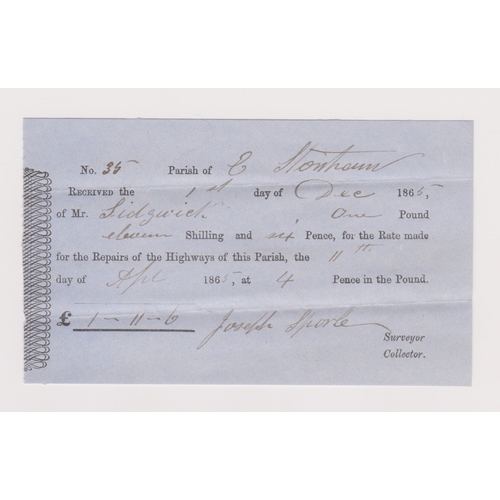 No. 35 Parish of E Stonham
RECEIVED the 1st day of Dec 1865,
of Mr. Sidgwick, One Pound
eleven Shilling and six Pence, for the Rate made
for the Repairs of the Highways of this Parish, the 11th
day of Apl 1865, at 4 Pence in the Pound.
£ 1-11-6 Joseph Sporle
Surveyor
Collector.